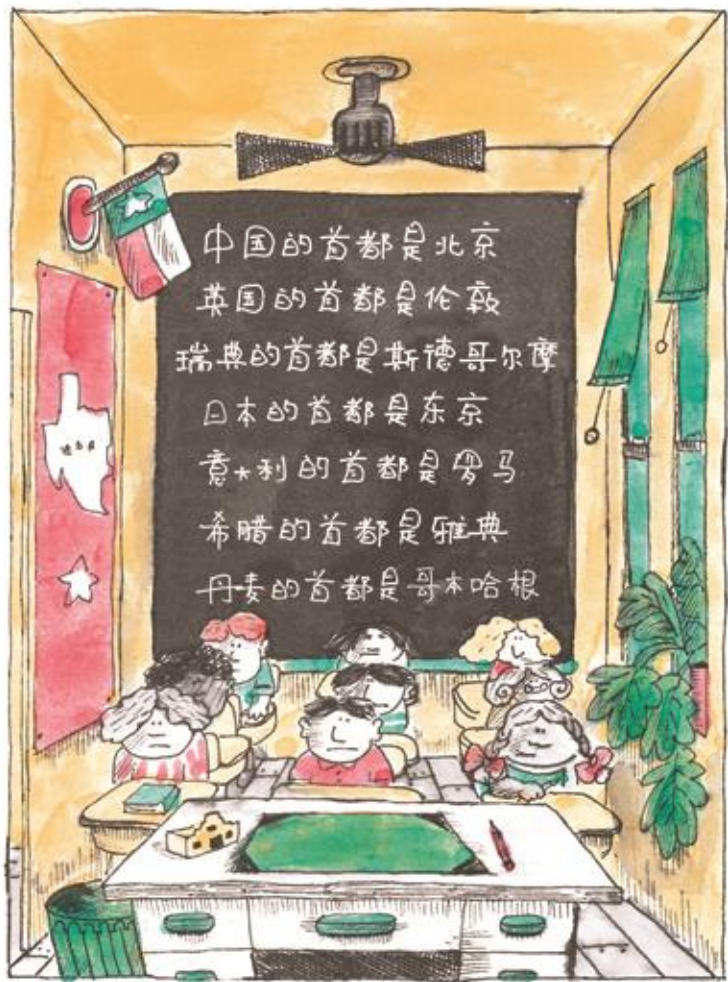 中国的首都是北京
英国的首都是伦敦
瑞典的首都是斯德哥尔摩
日本的首都是东京
意大利的首都是罗马
希腊的首都是雅典
丹麦的首都是哥本哈根